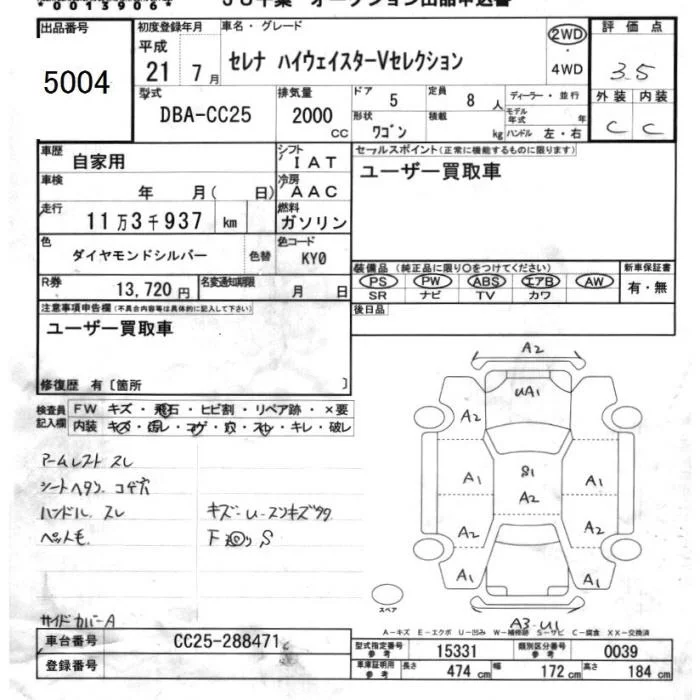 0013906
JU千葉 オークション出品申込書
出品番号 初度登録年月 車名・グレード 評価点
5004 平成 21 7月 セレナ ハイウェイスターVセレクション 2WD ・ 4WD 3.5
型式 排気量 ドア 定員 ディーラー・並行 外装 内装
DBA-CC25 2000 cc 5 8人 モデル年式 年 C C
形状 ワゴン 積載 kg ハンドル 左・右
車歴 自家用 シフト IAT セールスポイント(正常に機能するものに限ります)
車検 年 月( 日) 冷房 AAC ユーザー買取車
走行 11万3千937 km 燃料 ガソリン
色 ダイヤモンドシルバー 色替 色コード KY0
装備品(純正品に限り○をつけてください) 新車保証書
R券 13,720円 名変通知期限 月 日 PS PW ABS エアB AW 有・無
SR ナビ TV カワ
注意事項申告欄(不具合内容等は具体的に記入して下さい) 後日品
ユーザー買取車
修復歴 有〔箇所 〕
検査員記入欄 FW キズ・飛石・ヒビ割・リペア跡・×要
内装 キズ・汚レ・コゲ・穴・スレ・キレ・破レ
アームレスト スレ
シートヘタリ. コゲ穴
ハンドル スレ キズ:U-スリキズタタ
ペット毛. F
サイドカバーA
A2
UA1
A2 A2
S1
A1 A2 A1
A2 A2
A1 A1
スペア
A3-U1
A-キズ E-エクボ U-凹み W-補修跡 S-サビ C-腐食 XX-交換済
車台番号 CC25-288471 型式指定番号 参考 15331 類別区分番号 参考 0039
登録番号 車庫証明用 参考 長さ 474cm 幅 172cm 高さ 184cm